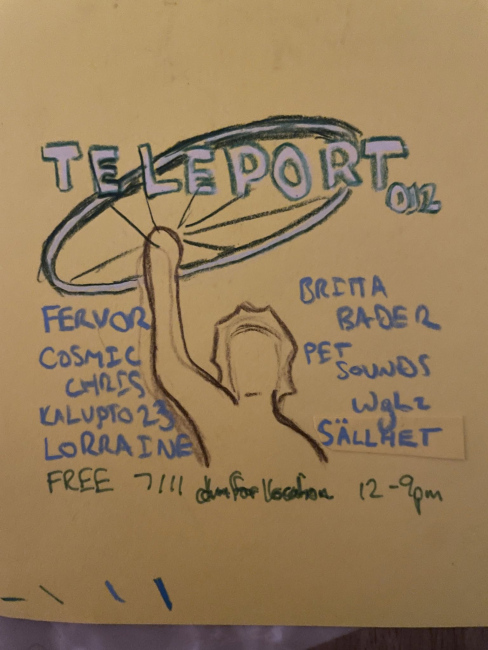 TELEPORT
012
FERVOR
COSMIC
CHRIS
KALUPTO23
LORRAINE
BRITTA
BADER
PET
SOUNDS
wgbz
SÄLLHET
FREE 7/11 dm for location 12-9pm